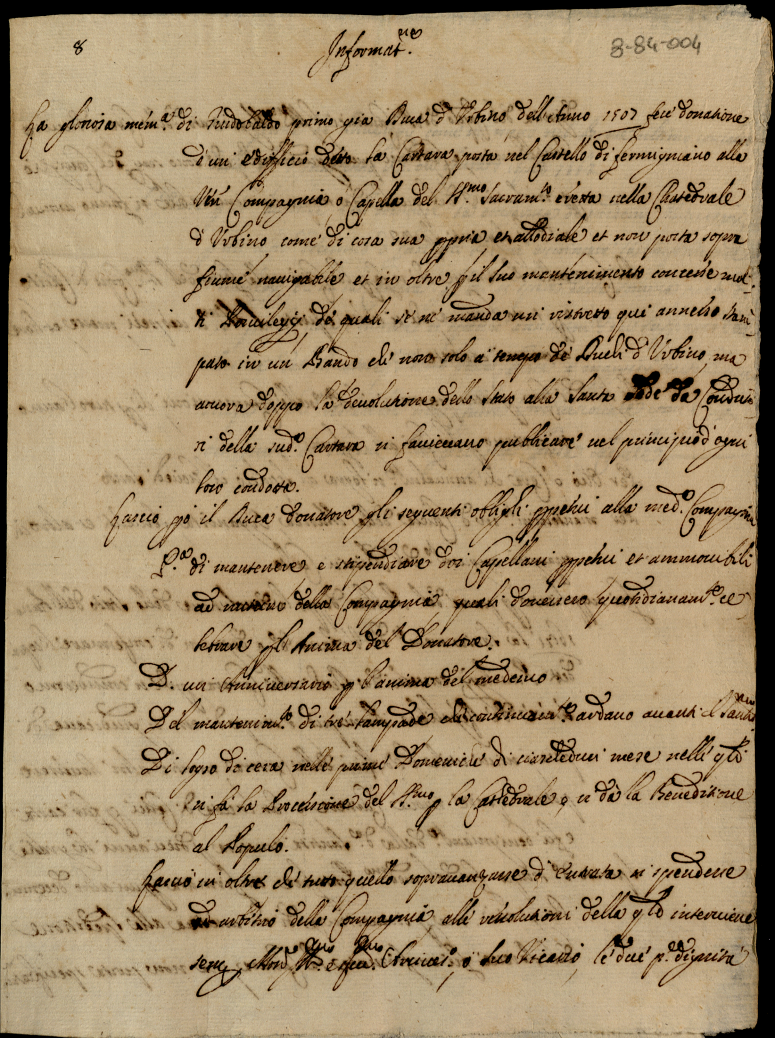 8 Informat.ne 8-84-004
La gloriosa mem.a di Guidobaldo primo gia Duca d'Urbino dell'Anno 1507 fece donatione
d'un edifficio detto la Cartara posta nel Castello di fermigniano alla
Ven Compagnia ò Capella del SS.mo Sacram.to eretta nella Chatedrale
d'Urbino come di cosa sua ppria et allodiale et non posta sopra
fiume navigabile et in oltre p il suo mantenimento concesse mol-
ti Privilegij de quali se ne manda un ristretto qui annesso stam
pato in un Bando che non solo a tempo de Duchi d'Urbino, ma
ancora doppo la devolutione dello Stato alla Santa Sede da Condutto
ri della sud.a Cartara si facievano publicare nel principio d'ogni
loro condotta.
Lasciò pò il Duca donatore gli seguenti oblighi ppetui alla med.a Compagnia
P.a di mantenere e stipendiare doi Capellani ppetui et ammovibili
ad nutum della Compagnia, quali dovessero quotidianam.te ce
lebrare p l'Anima del Donatore.
D. un Anniversario p l'anima del medemo
Del mantenim.to di tre lampade che continuam.te ardano avanti il Santis.mo
Di sopra di cera nelle prime Domeniche di ciascheduni mese nelle qli
si fà la Processione del SS.mo p la Cattedrale, e si dà la Beneditione
al Populo.
Lasciò in oltre che tutto quello sopravanzasse d'Entrata si spendesse
ad arbitrio della Compagnia, alle resolutioni della qle interviene
semp Mons.r Arcives.o ò suo Vicario, le due p.e dignità